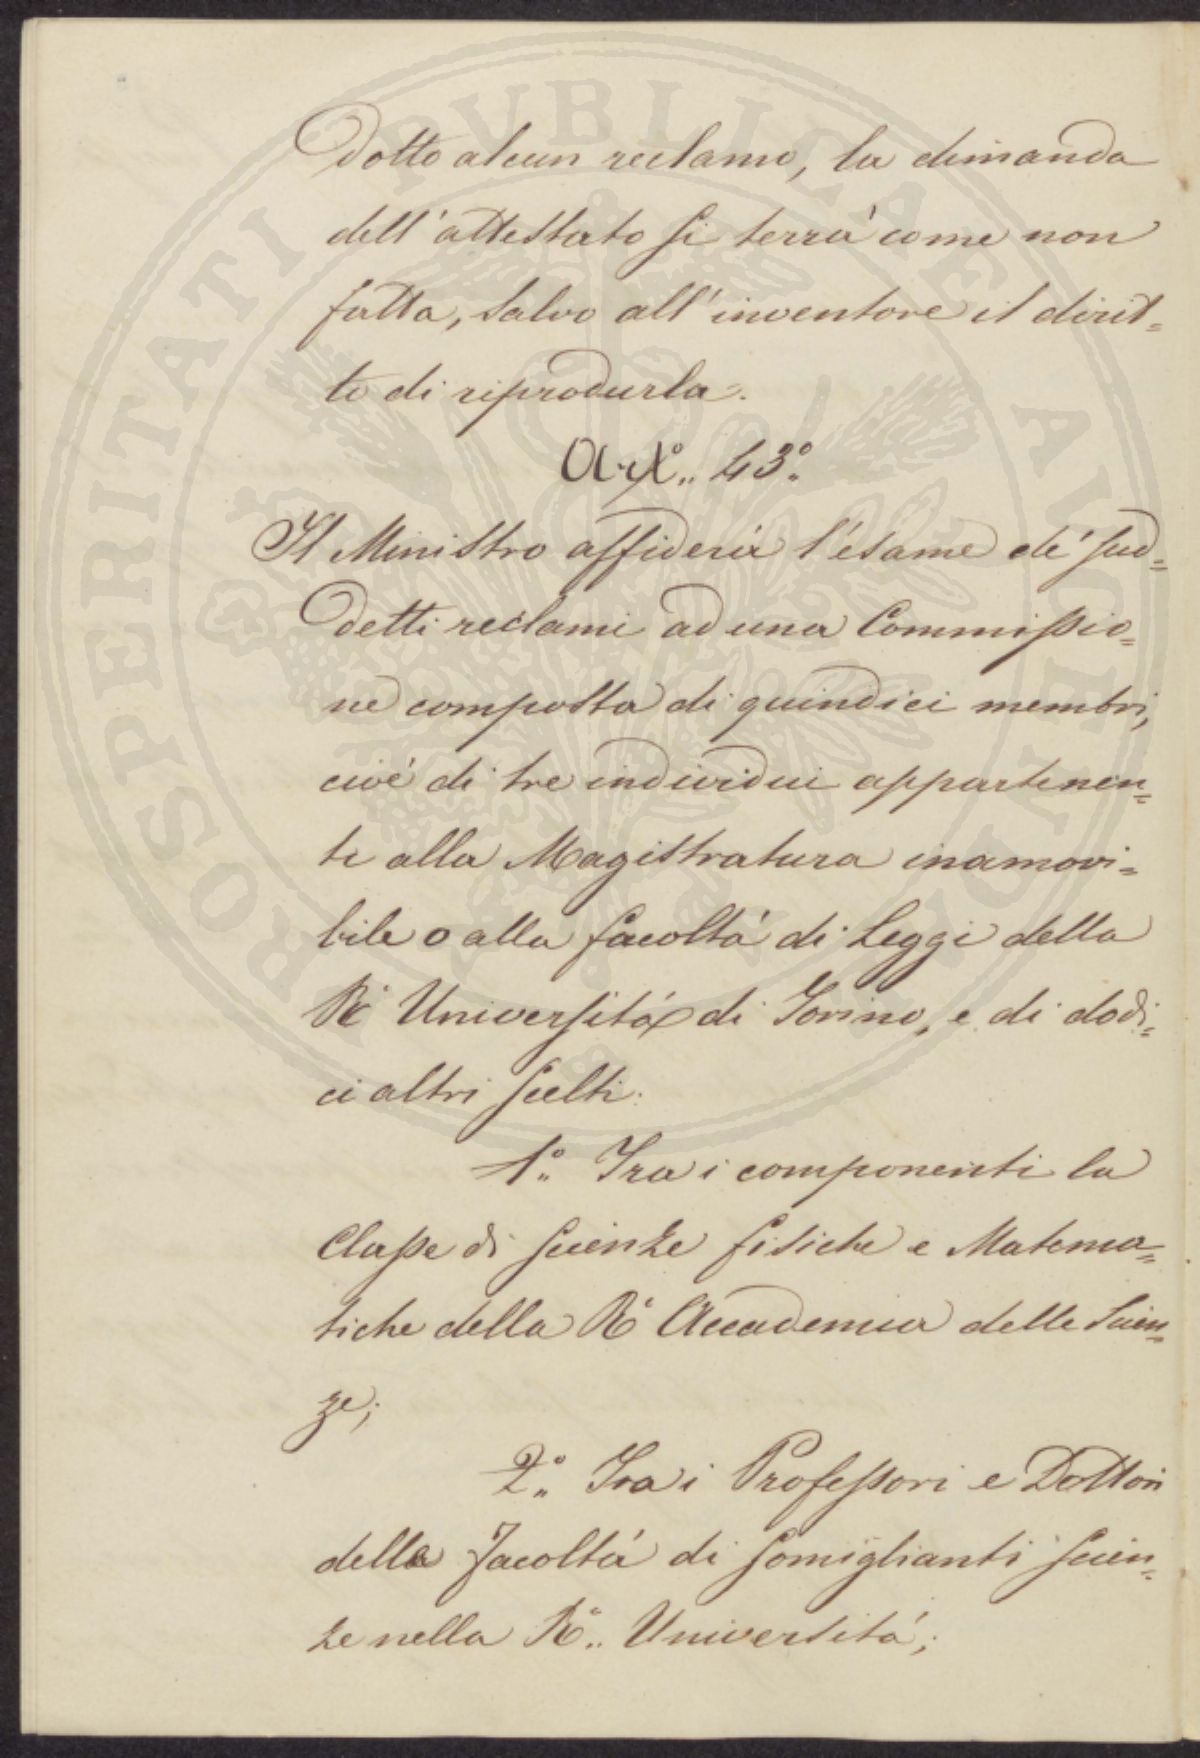 dotto alcun reclamo, la dimanda
dell'attestato si terrà come non
fatta, salvo all'inventore il dirit=
to di riprodurla.
Art.° 43°.
Il Ministro affiderà l'esame de' sud=
detti reclami ad una Commissio=
ne composta di quindici membri,
cioè di tre individui appartenen=
ti alla Magistratura inamovi=
bile o alla facoltà di Leggi della
R.ª Università di Torino, e di dodi=
ci altri scelti.
1°. Tra i componenti la
Classe di scienze fisiche e Matema=
tiche della R.ª Accademia delle Scien=
ze;
2°. Tra i Professori e Dottori
della Facoltà di somiglianti scien=
ze nella R.ª Università;
PROSPERITATI PUBLICAE AUGENDAE